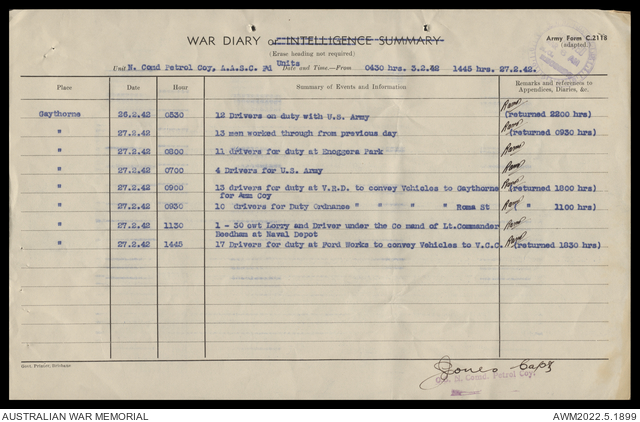 WAR DIARY or INTELLIGENCE SUMMARY
Army Form C.2118
(adapted.)
(Erase heading not required)
Unit N. Comd Petrol Coy, A.A.S.C. Fd Units Date and Time.—From 0430 hrs. 3.2.42 1445 hrs. 27.2.42.
Place Date Hour Summary of Events and Information Remarks and references to Appendices, Diaries, &c.
Gaythorne 26.2.42 0530 12 Drivers on duty with U.S. Army (returned 2200 hrs)
" 27.2.42 13 men worked through from previous day (returned 0930 hrs)
" 27.2.42 0800 11 drivers for duty at Enoggera Park
" 27.2.42 0700 4 Drivers for U.S. Army
" 27.2.42 0900 13 drivers for duty at V.R.D. to convey Vehicles to Gaythorne (returned 1800 hrs)
for Amm Coy
" 27.2.42 0930 10 drivers for Duty Ordnance " " " " Roma St " 1100 hrs)
" 27.2.42 1130 1 - 30 cwt Lorry and Driver under the Co mand of Lt.Commander
Needham at Naval Depot
" 27.2.42 1445 17 Drivers for duty at Ford Works to convey Vehicles to V.C.C. (returned 1830 hrs)
Govt. Printer, Brisbane
Jones Capt
N. Comd. Petrol Coy.
AUSTRALIAN WAR MEMORIAL
AWM2022.5.1899